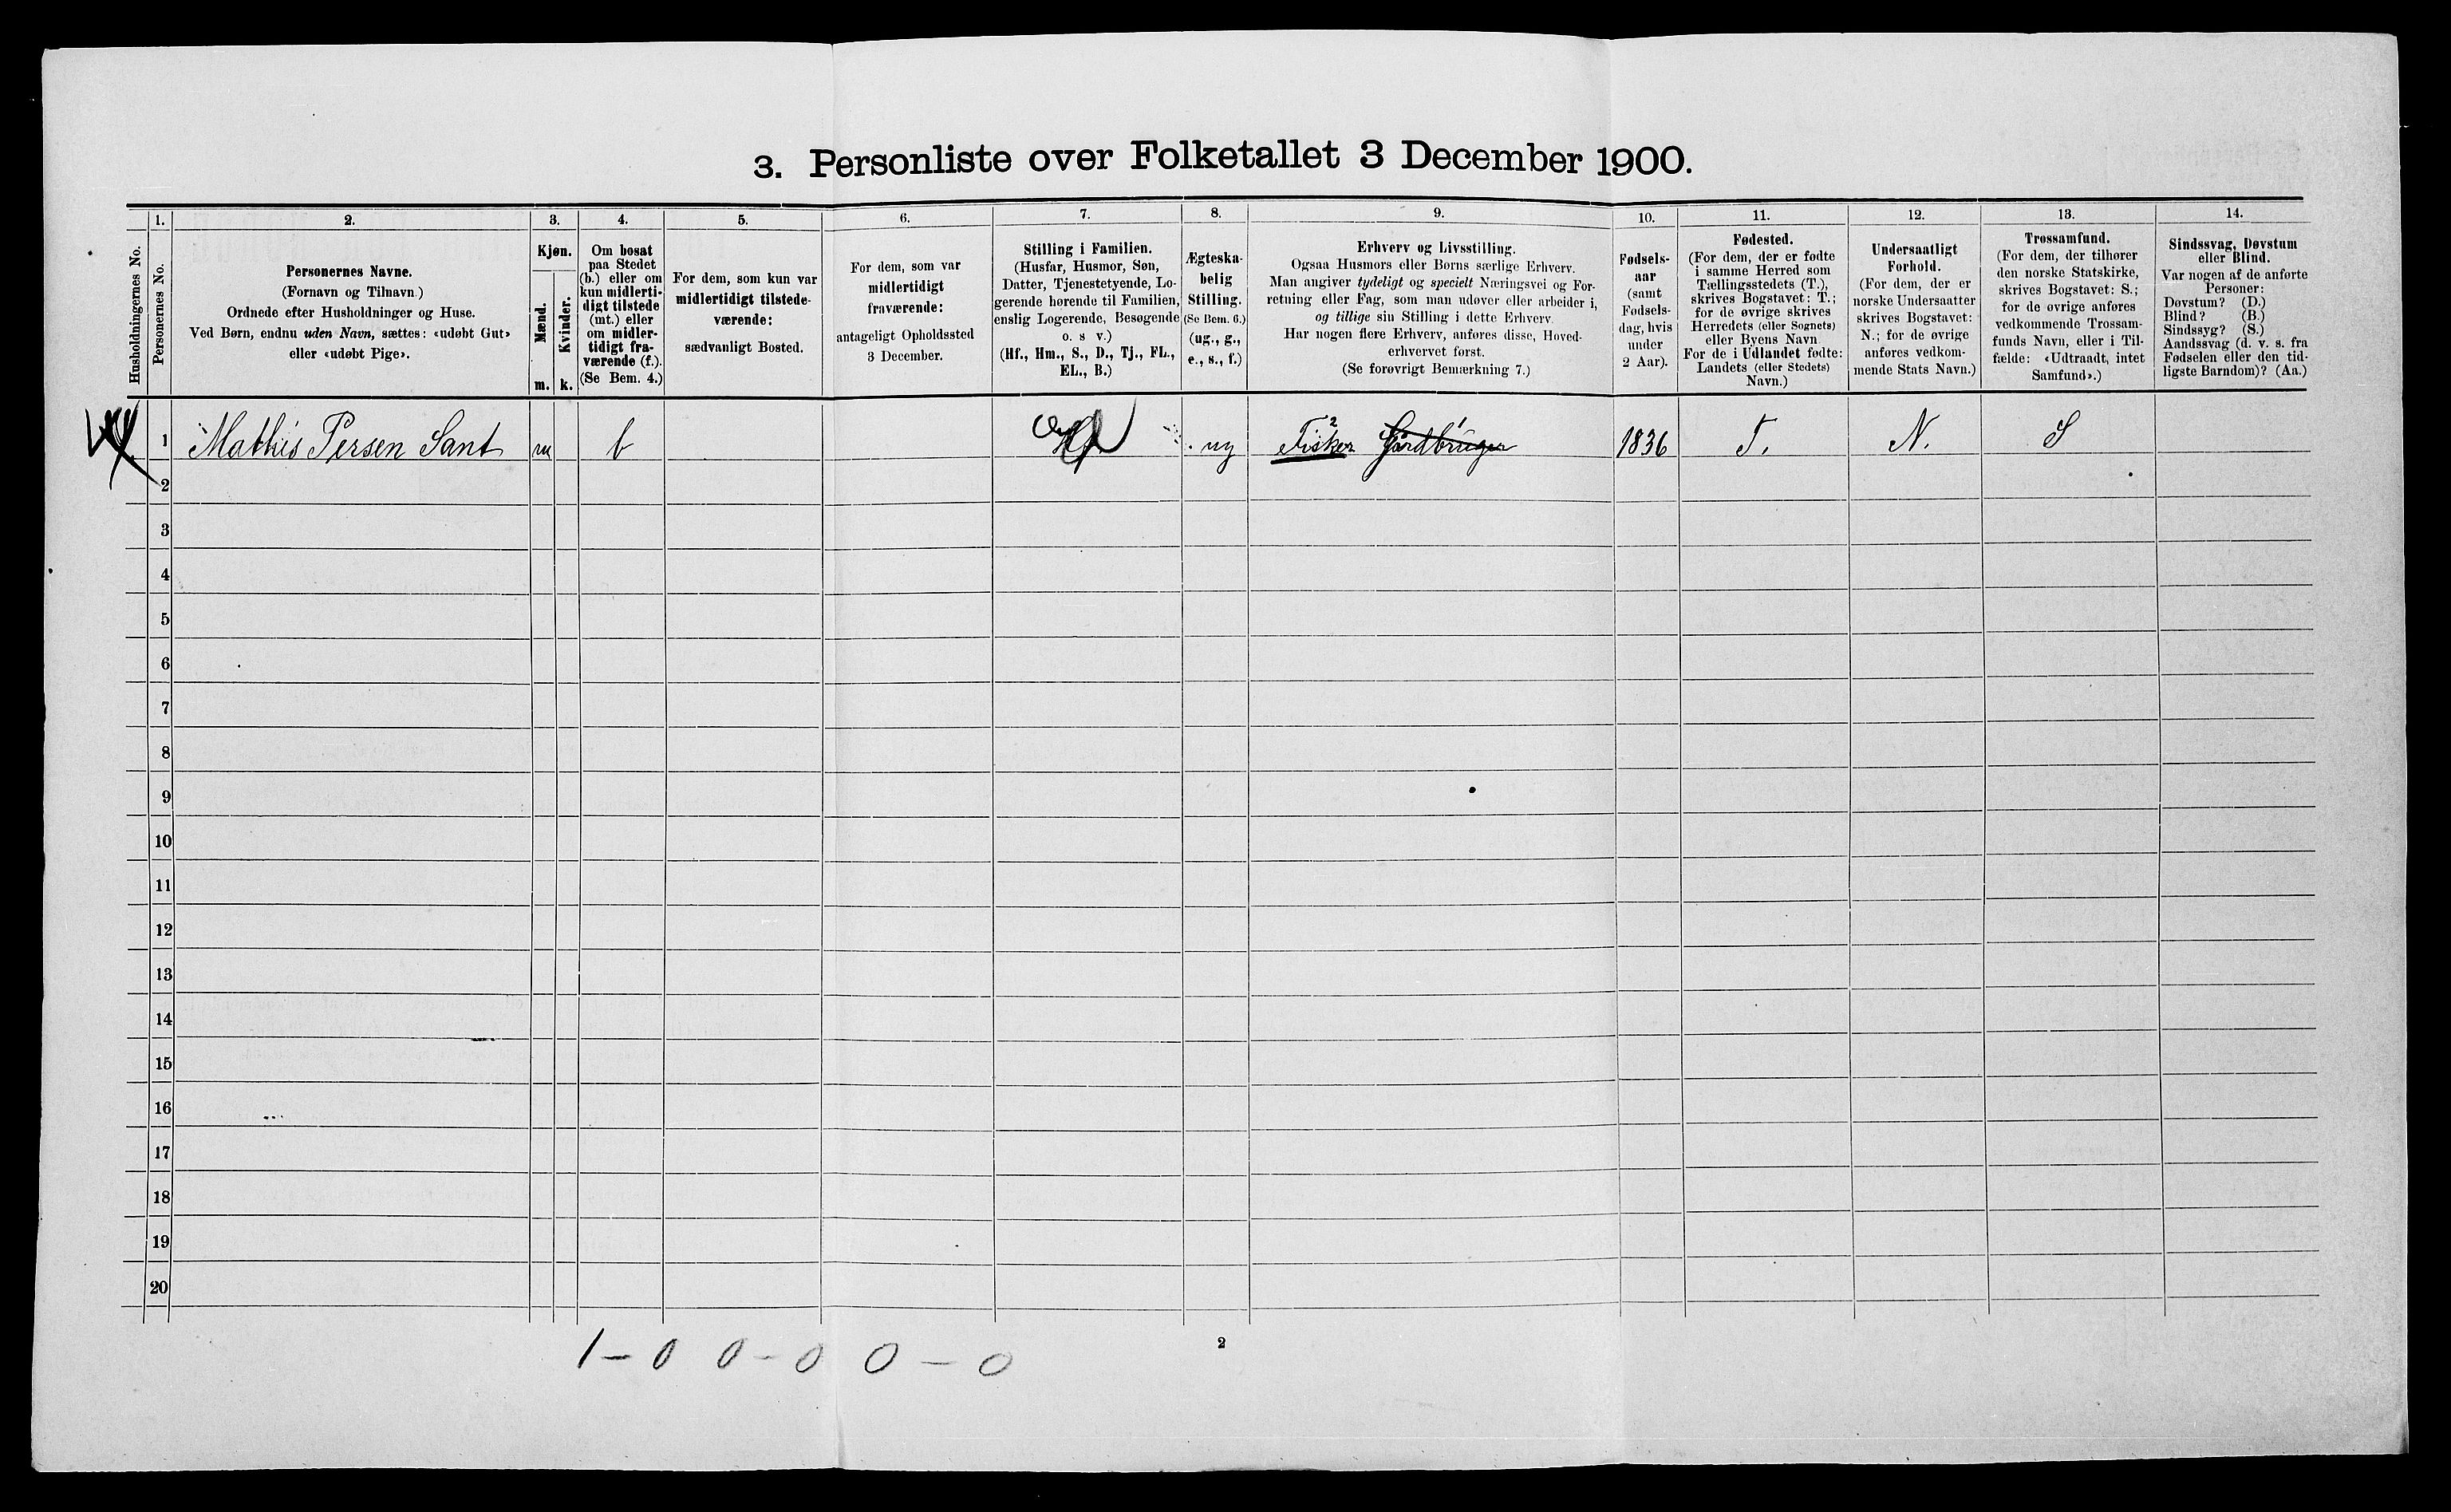 3. Personliste over Folketallet 3 December 1900.
1. 2. 3. 4. 5. 6. 7. 8. 9. 10. 11. 12. 13. 14.
Husholdningernes No.
Personernes No.
Personernes Navne.
(Fornavn og Tilnavn.)
Ordnede efter Husholdninger og Huse.
Ved Børn, endnu uden Navn, sættes: «udøbt Gut»
eller «udøbt Pige».
Kjøn.
Mænd.
Kvinder.
m. k.
Om bosat
paa Stedet
(b.) eller om
kun midlerti-
digt tilstede
(mt.) eller
om midler-
tidigt fra-
værende (f.).
(Se Bem. 4.)
For dem, som kun var
midlertidigt tilstede-
værende:
sædvanligt Bosted.
For dem, som var
midlertidigt
fraværende:
antageligt Opholdssted
3 December.
Stilling i Familien.
(Husfar, Husmor, Søn,
Datter, Tjenestetyende, Lo-
gerende hørende til Familien,
enslig Logerende, Besøgende
o. s v.)
(Hf., Hm., S., D., Tj., FL.,
EL., B.)
Ægteska-
belig
Stilling.
(Se Bem. 6.)
(ug., g.,
e., s., f.)
Erhverv og Livsstilling.
Ogsaa Husmors eller Børns særlige Erhverv.
Man angiver tydeligt og specielt Næringsvei og For-
retning eller Fag, som man udøver eller arbeider i,
og tillige sin Stilling i dette Erhverv.
Har nogen flere Erhverv, anføres disse, Hoved-
erhvervet først.
(Se forøvrigt Bemærkning 7.)
Fødsels-
aar
(samt
Fødsels-
dag, hvis
under
2 Aar).
Fødested.
(For dem, der er fødte
i samme Herred som
Tællingsstedets (T.),
skrives Bogstavet: T.;
for de øvrige skrives
Herredets (eller Sognets)
eller Byens Navn
For de i Udlandet fødte:
Landets (eller Stedets)
Navn.)
Undersaatligt
Forhold.
(For dem, der er
norske Undersaatter
skrives Bogstavet:
N.; for de øvrige
anføres vedkom-
mende Stats Navn.)
Trossamfund.
(For dem, der tilhører
den norske Statskirke,
skrives Bogstavet: S.;
for de øvrige anføres
vedkommende Trossam-
funds Navn, eller i Til-
fælde: «Udtraadt, intet
Samfund».)
Sindssvag, Døvstum
eller Blind.
Var nogen af de anførte
Personer:
Døvstum? (D.)
Blind? (B.)
Sindssyg? (S.)
Aandssvag (d. v. s. fra
Fødselen eller den tid-
ligste Barndom)? (Aa.)
1 Mathis Persen Sant m b ug Fisker 2 Gårdbruger 1 1836 T. N. S
2
3
4
5
6
7
8
9
10
11
12
13
14
15
16
17
18
19
20
1 - 0 0 - 0 0 - 0
2